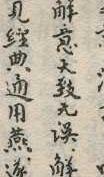 解意大致无误解
见經典通用燕遂